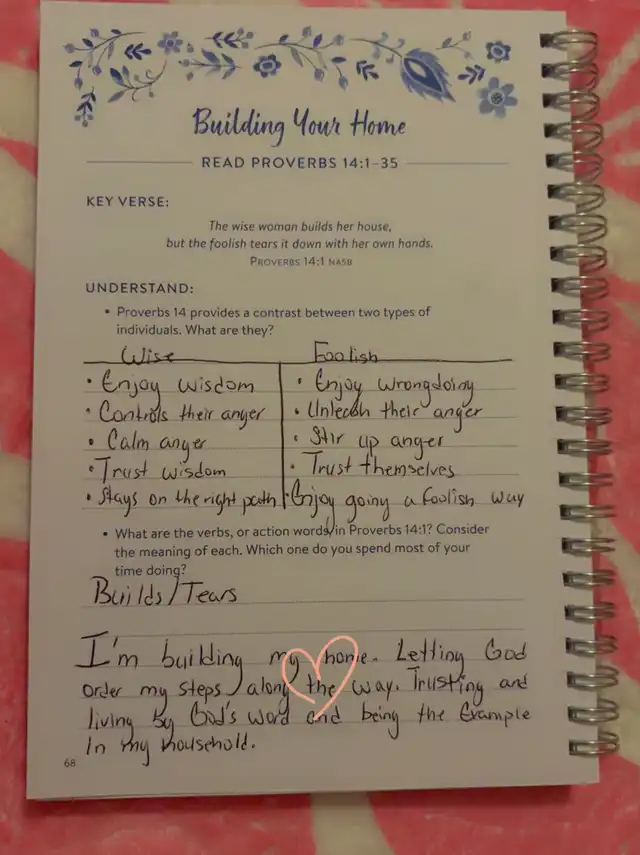 Building Your Home
READ PROVERBS 14:1–35
KEY VERSE:
The wise woman builds her house,
but the foolish tears it down with her own hands.
PROVERBS 14:1 NASB
UNDERSTAND:
• Proverbs 14 provides a contrast between two types of
individuals. What are they?
Wise Foolish
• Enjoy wisdom • Enjoy wrongdoing
• Controls their anger • Unleash their anger
• Calm anger • Stir up anger
• Trust wisdom • Trust themselves
• Stays on the right path • Enjoy going a foolish way
• What are the verbs, or action words, in Proverbs 14:1? Consider
the meaning of each. Which one do you spend most of your
time doing?
Builds/Tears
I'm building my home. Letting God
order my steps along the way. Trusting and
living by God's word and being the Example
in my household.
68